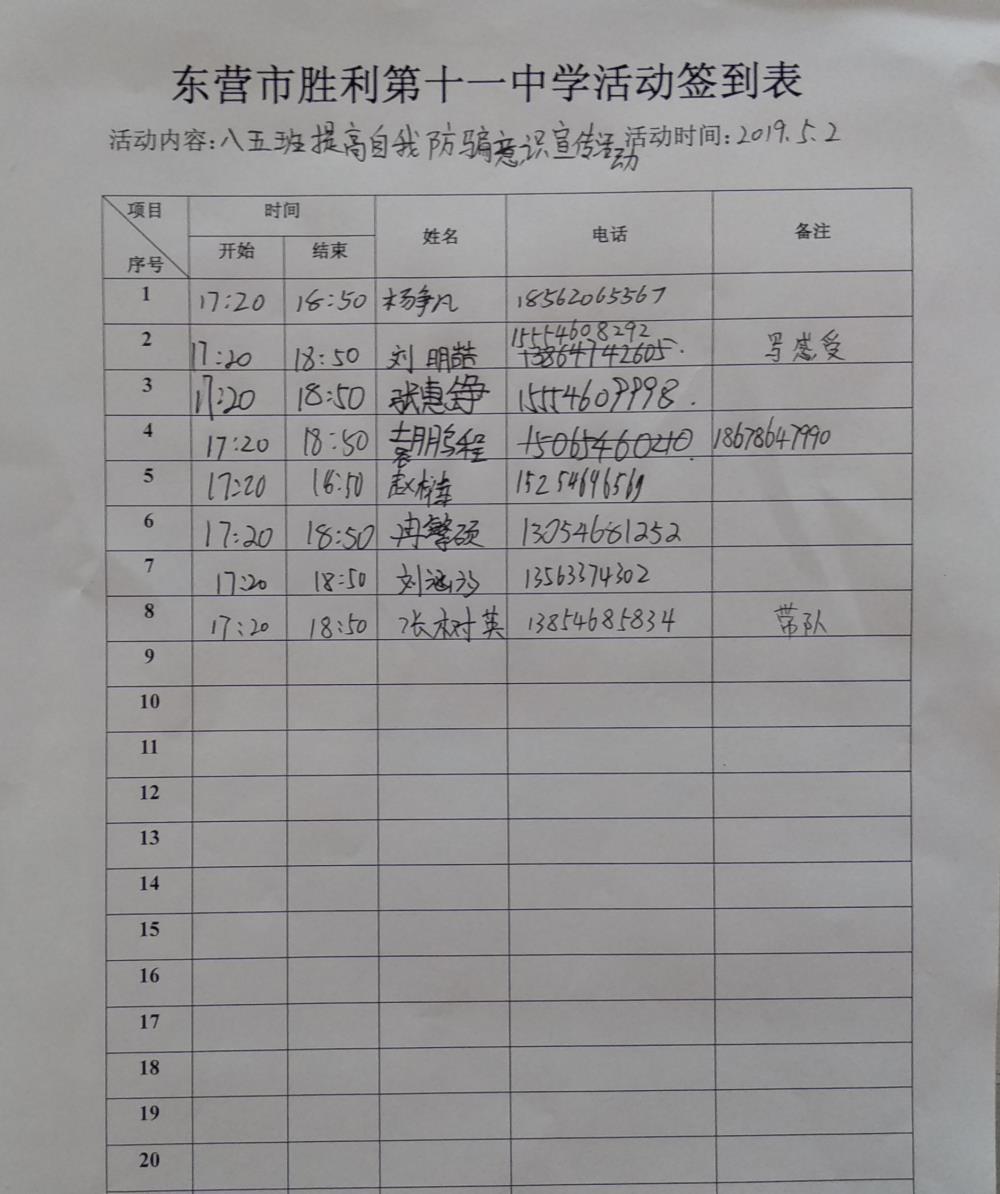 东营市胜利第十一中学活动签到表
活动内容:八五班提高自我防骗意识宣传活动 活动时间:2019.5.2
项目 时间 姓名 电话 备注
序号 开始 结束
1 17:20 18:50 杨争凡 18562065567
2 17:20 18:50 刘明喆 15554608292 13864742605. 写感受
3 17:20 18:50 张惠铮 15554609998.
4 17:20 18:50 鹏程 15065460210 18678647990
5 17:20 18:50 赵 15254696569
6 17:20 18:50 冉擎硕 13054681252
7 17:20 18:50 刘 13563374302
8 17:20 18:50 张树英 13854685834 带队
9
10
11
12
13
14
15
16
17
18
19
20